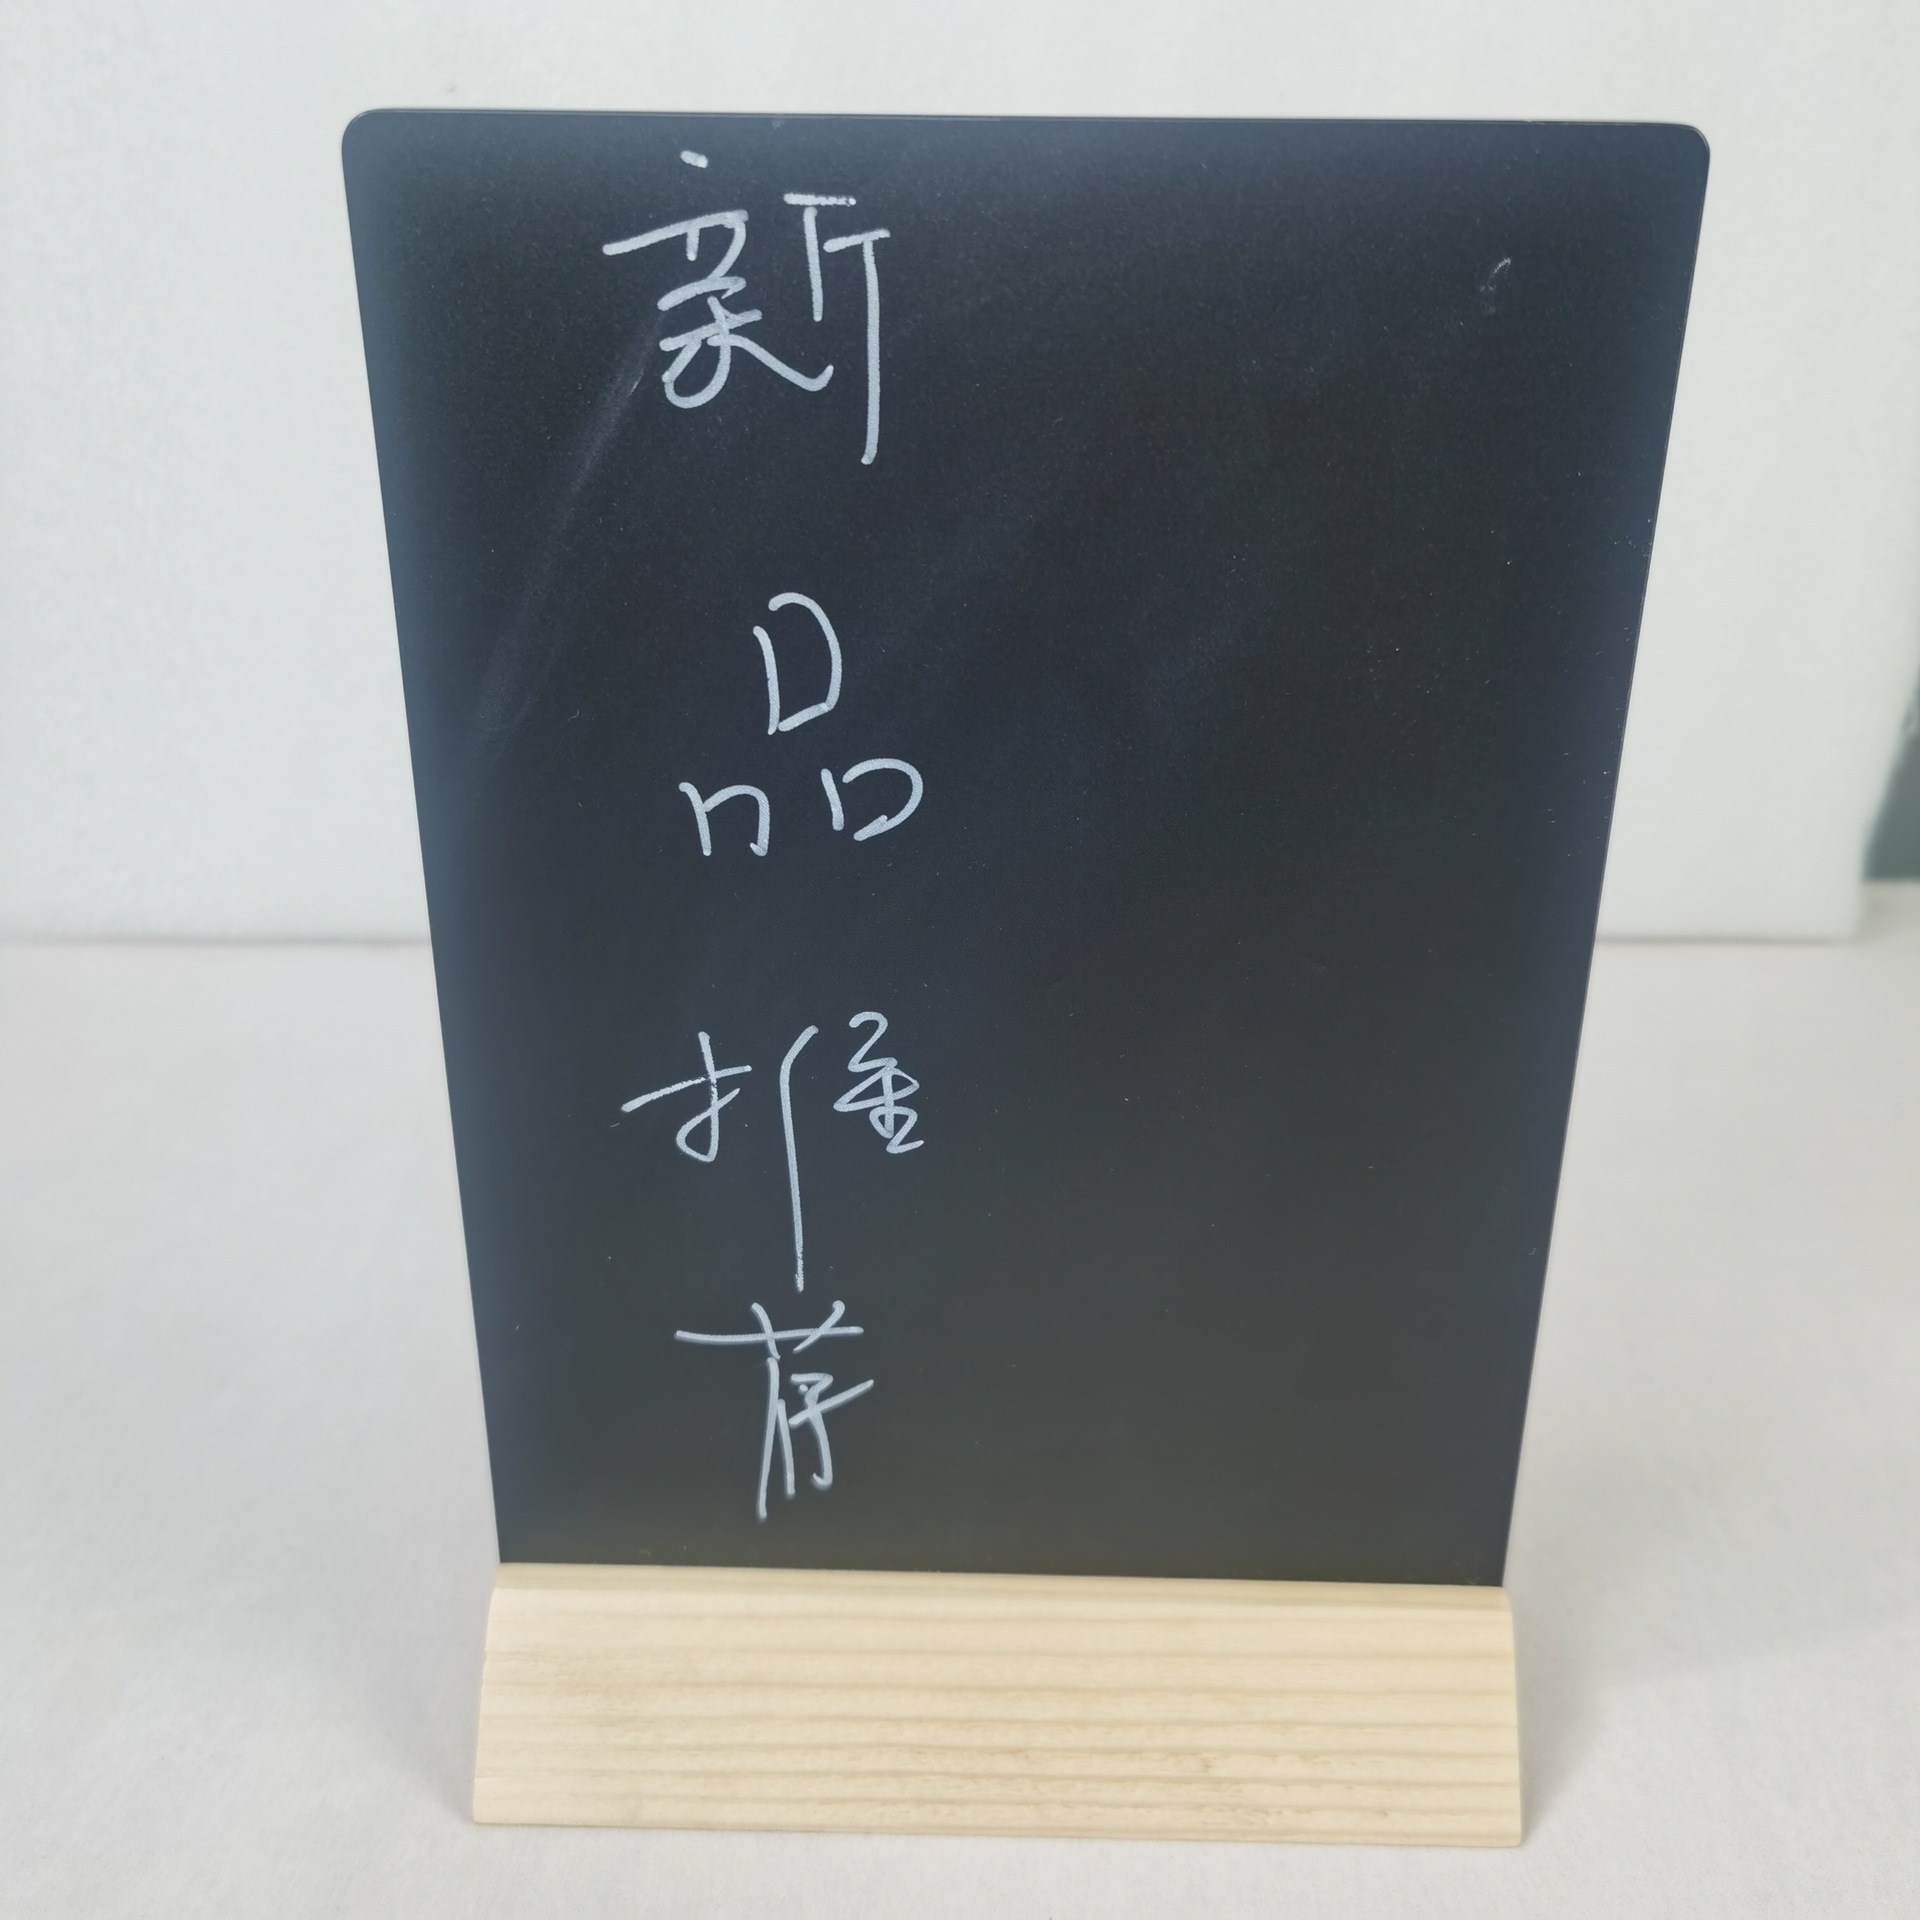 新品推荐